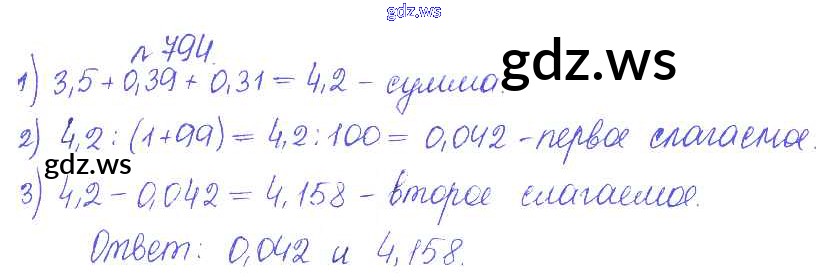 gdz.ws
№ 794.
1) 3,5 + 0,39 + 0,31 = 4,2 - сумма.
gdz.ws
2) 4,2 : (1+99) = 4,2 : 100 = 0,042 - первое слагаемое.
gdz.ws
3) 4,2 - 0,042 = 4,158 - второе слагаемое.
Ответ: 0,042 и 4,158.